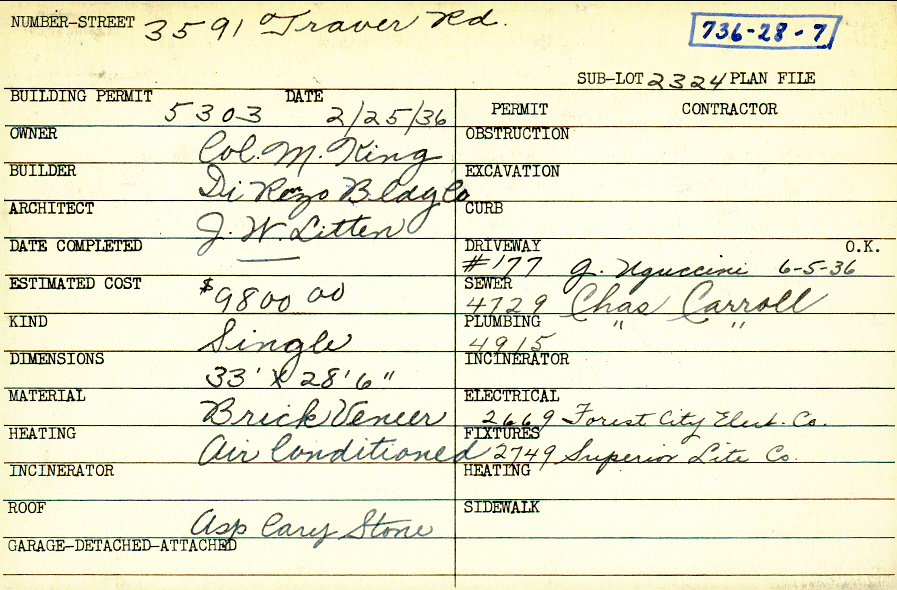 NUMBER-STREET 3591 Traver Rd.
736-28-7
SUB-LOT 2324 PLAN FILE
BUILDING PERMIT 5303 DATE 2/25/36
PERMIT CONTRACTOR
OWNER Col. M. King
OBSTRUCTION
BUILDER Di Rezo Bldg Co
EXCAVATION
ARCHITECT J. W. Litten
CURB
DATE COMPLETED
DRIVEWAY O.K.
#177 G. Uguccini 6-5-36
ESTIMATED COST $9800 00
SEWER 4729 Chas Carroll
KIND Single
PLUMBING 4915 " "
DIMENSIONS 33' X 28'6"
INCINERATOR
MATERIAL Brick Veneer
ELECTRICAL 2669 Forest City Elect. Co.
HEATING Air Conditioned
FIXTURES 2749 Superior Lite Co.
INCINERATOR
HEATING
ROOF Asp Carey Stone
SIDEWALK
GARAGE-DETACHED-ATTACHED